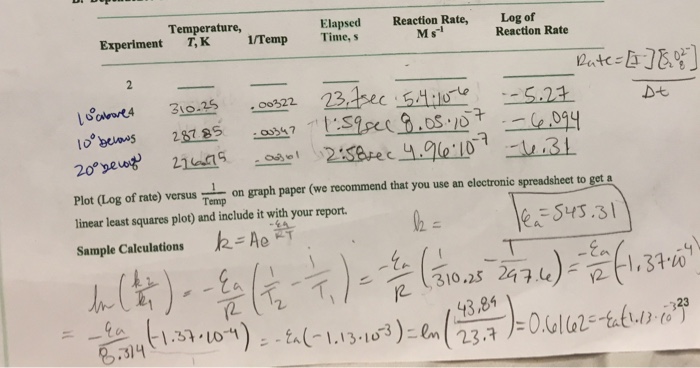 Experiment Temperature, T, K 1/Temp Elapsed Time, s Reaction Rate, M s⁻¹ Log of Reaction Rate
Rate = [I][S₂O₈²⁻]
Δt
2
10° above 4 310.25 .00322 23.7sec 5.4·10⁻⁶ -5.27
10° below 5 287.85 .00347 1:59sec 8.05·10⁻⁷ -6.094
20° below 276.75 .00361 2:58sec 4.96·10⁻⁷ -6.31
Plot (Log of rate) versus 1/Temp on graph paper (we recommend that you use an electronic spreadsheet to get a
linear least squares plot) and include it with your report.
k = Ea = 545.31
Sample Calculations k = Ae^(-Ea/RT)
ln(k2/k1) = -Ea/R (1/T2 - 1/T1) = -Ea/R (1/310.25 - 1/297.6) = -Ea/R (-1.37·10⁻⁴)
= -Ea/8.314 (-1.37·10⁻⁴) = -Ea(-1.13·10⁻³) = ln(43.89/23.7) = 0.6162 = -Ea(-1.13·10⁻³